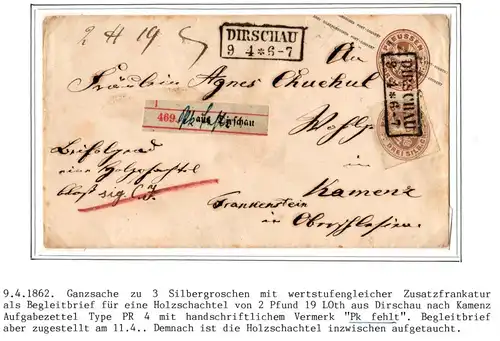 2 ℔ 19
DIRSCHAU
9 4 * 6-7
PREUSSEN
An
Fräulein Agnes
DIRSCHAU
9 4 * 6-7
469. aus Dirschau
Wohlg
DREI SILB
Beifolgend
eine Holzschachtel
sig.
Kamenz
Frankenstein
in Oberschlesien.
9.4.1862. Ganzsache zu 3 Silbergroschen mit wertstufengleicher Zusatzfrankatur
als Begleitbrief für eine Holzschachtel von 2 Pfund 19 LOth aus Dirschau nach Kamenz
Aufgabezettel Type PR 4 mit handschriftlichem Vermerk "Pk fehlt". Begleitbrief
aber zugestellt am 11.4.. Demnach ist die Holzschachtel inzwischen aufgetaucht.